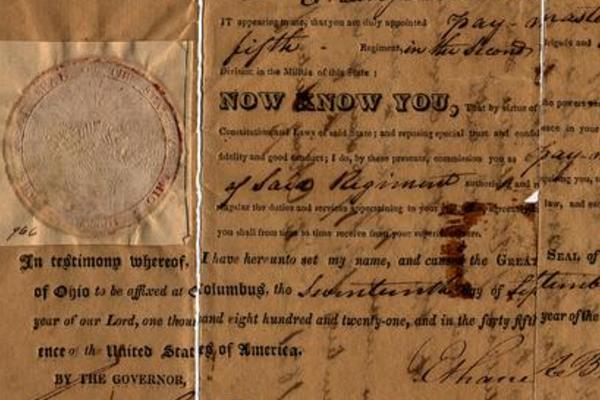 IT appearing to me, that you are duly appointed pay-maste
fifth - Regiment, in the Second brigade and
Division in the Militia of this State:
NOW KNOW YOU, That by virtue of the powers
Constitution and Laws of said State; and reposing special trust and confi ence in your
fidelity and good conduct; I do, by these presents, commission you as pay-m
of Said Regiment authorising and requiring you,
regular the duties and services appertaining to your law, and
you shall from time to time receive from your superior
966
In testimony whereof, I have hereunto set my name, and caused the GREAT SEAL of
of Ohio to be affixed at Columbus, the Seventeenth day of Septemb
year of our Lord, one thousand eight hundred and twenty-one, and in the forty fifth year of the
ence of the United States of America.
BY THE GOVERNOR,
Ethan A. B